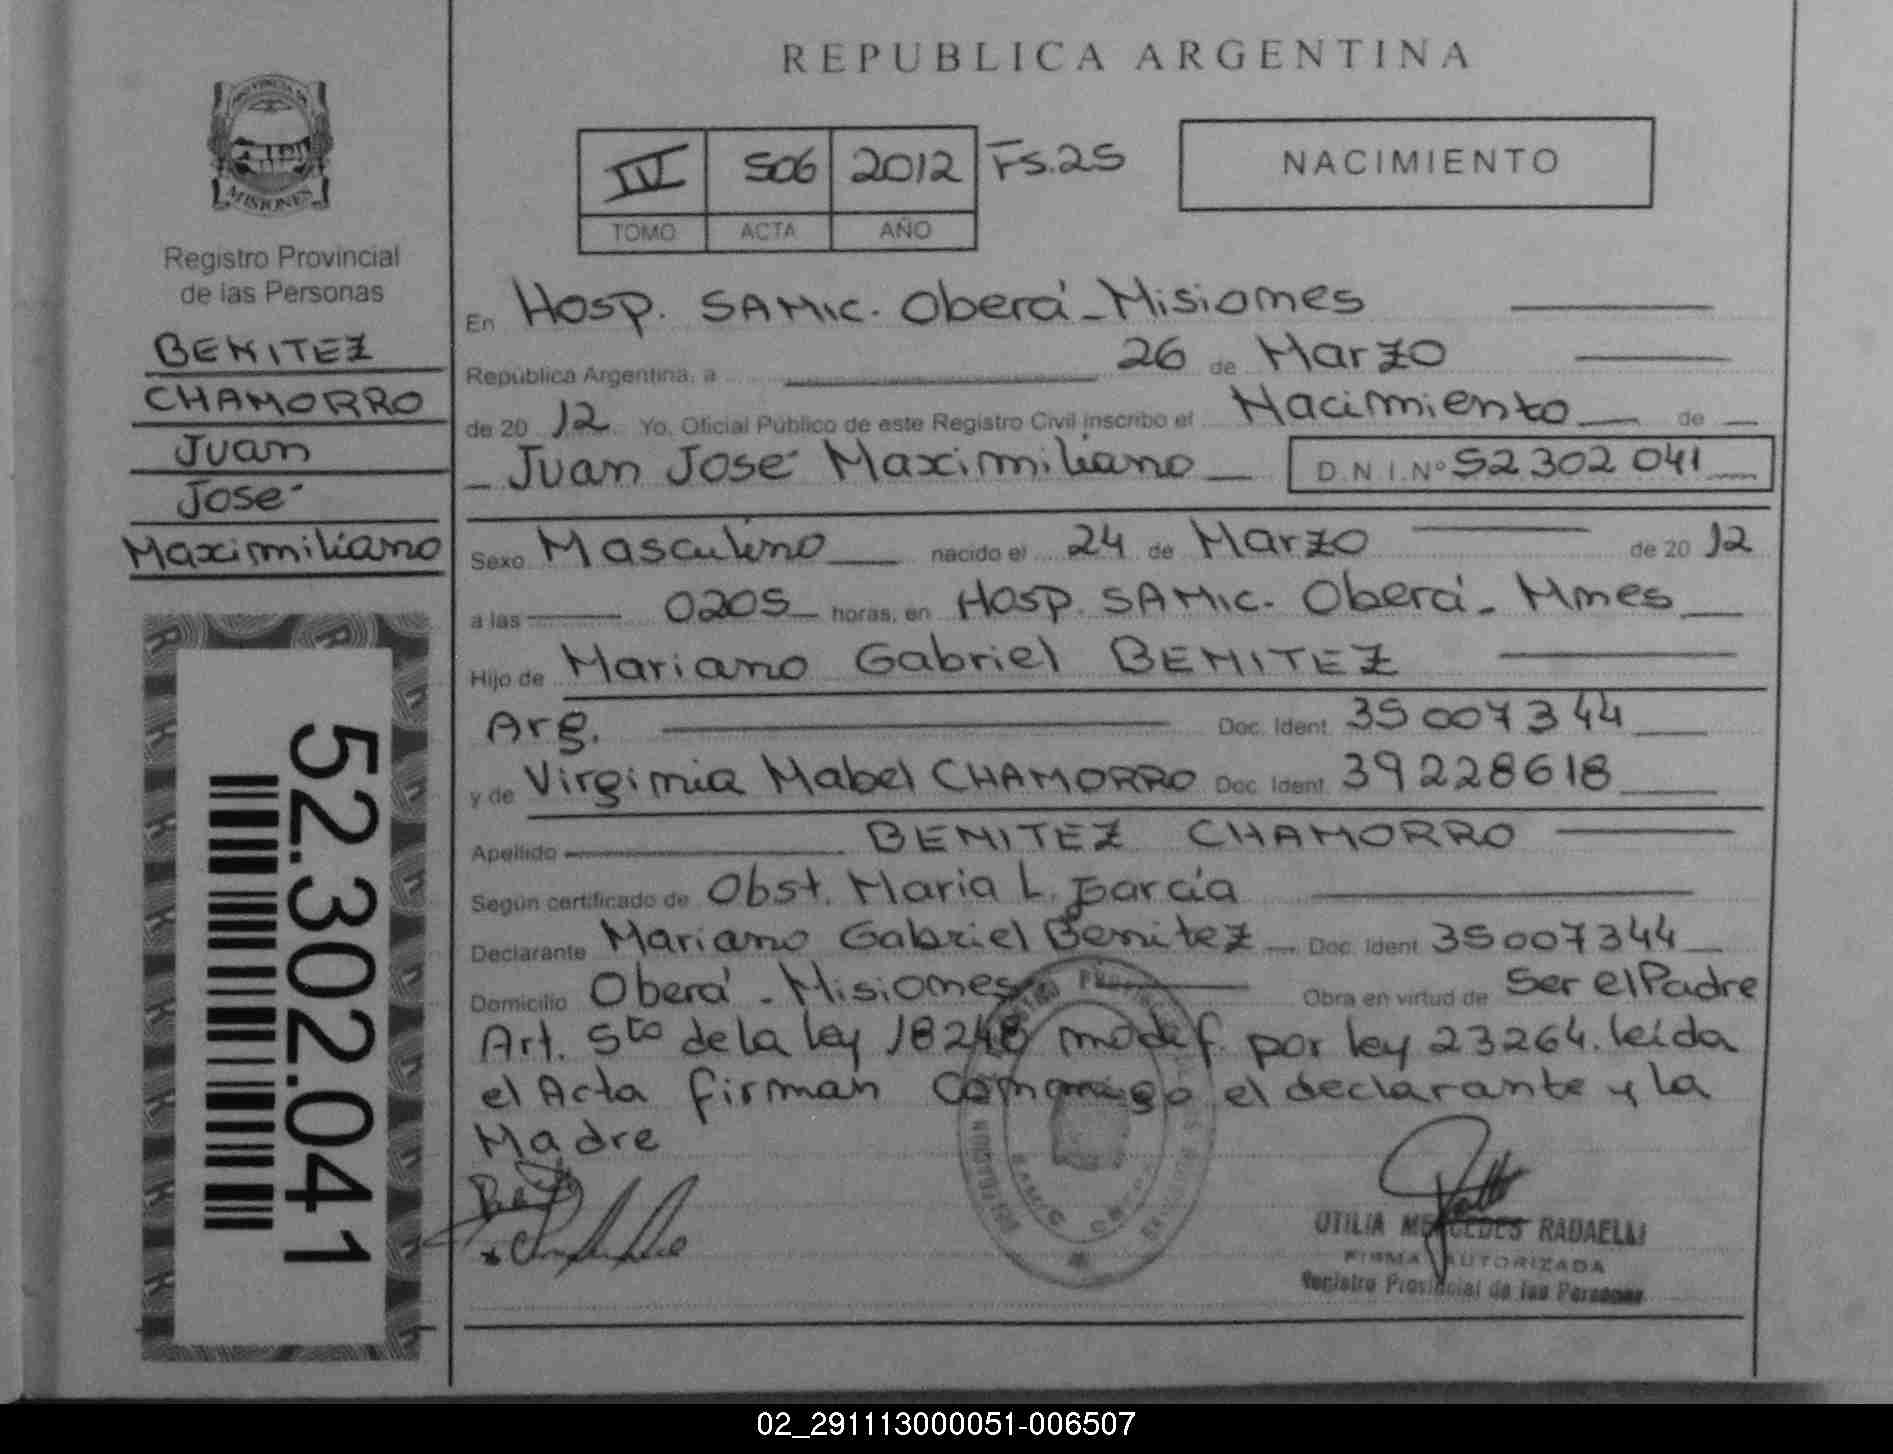 REPUBLICA ARGENTINA
PROVINCIA DE
MISIONES
Registro Provincial
de las Personas
BENITEZ
CHAMORRO
Juan
José
Maximiliano
52.302.041
IV 506 2012 Fs.25
TOMO ACTA AÑO
NACIMIENTO
En Hosp. SAMIC. Oberá-Misiones
República Argentina, a 26 de Marzo
de 2012 Yo, Oficial Público de este Registro Civil inscribo el Nacimiento de
Juan José Maximiliano D.N.I.Nº 52 302 041
Sexo Masculino nacido el 24 de Marzo de 2012
a las 0205 horas, en Hosp. SAMIC. Oberá- Mnes
Hijo de Mariano Gabriel BENITEZ
Arg. Doc. Ident. 35 007 344
y de Virginia Mabel CHAMORRO Doc. Ident. 39228618
Apellido BENITEZ CHAMORRO
Según certificado de Obst. Maria L. Garcia
Declarante Mariano Gabriel Benitez Doc. Ident 35007344
Domicilio Oberá - Misiones Obra en virtud de Ser el Padre
Art. 5to de la ley 18248 modif. por ley 23264. leida
el Acta firman conmigo el declarante y la
Madre
OTILIA MERCEDES RADAELLI
FIRMA AUTORIZADA
Registro Provincial de las Personas
02_291113000051-006507